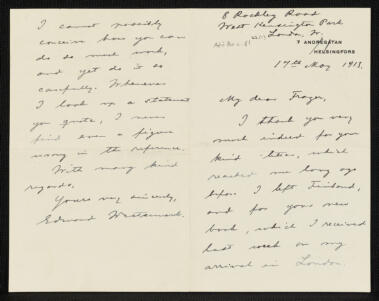 8 Rockley Road
West Kensington Park
London, W.
7 ANDREGATAN
HELSINGFORS
17th May 1913.
My dear Frazer,
I thank you very
much indeed for your
kind letter, which
reached me long ago
before I left Finland,
and for your new
book, which I received
last week on my
arrival in London.
I cannot possibly
conceive how you can
do so much work,
and yet do it so
carefully. Whenever
I look up a statement
you quote, I never
find even a figure
wrong in the reference.
With many kind
regards,
Yours very sincerely,
Edward Westermarck.